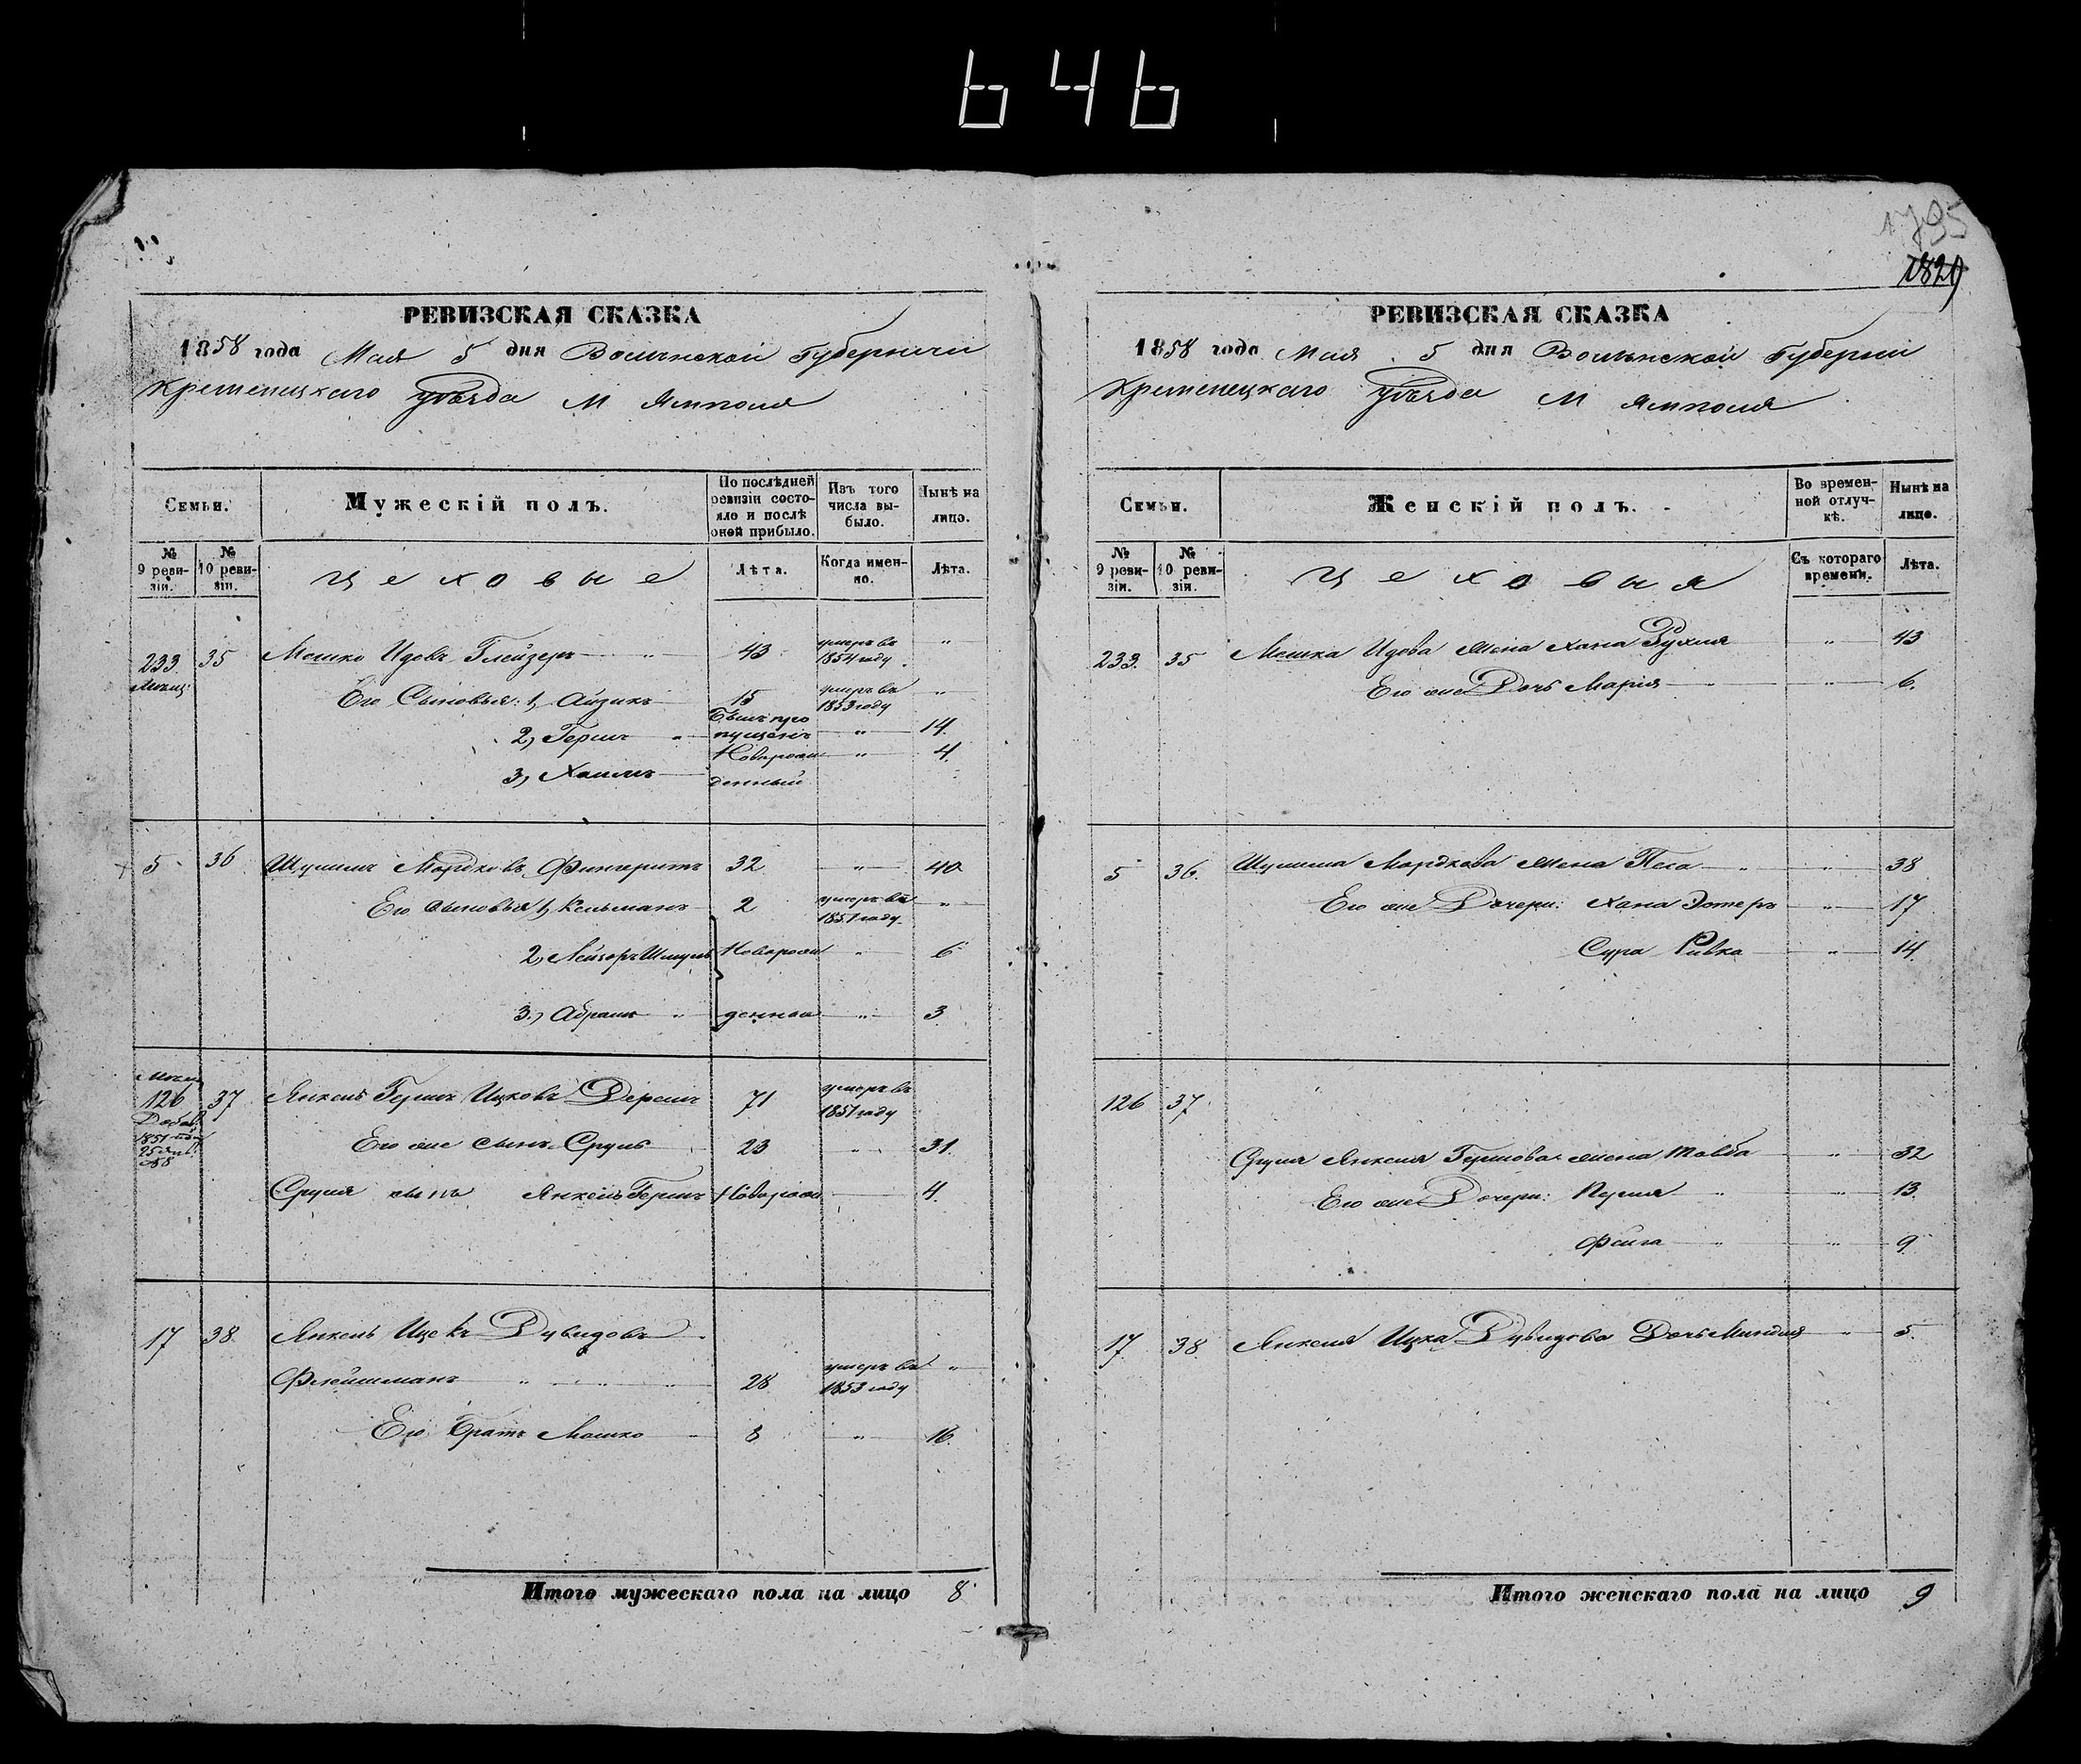 646
1795
1829
РЕВИЗСКАЯ СКАЗКА
1858 года Мая 5 дня Волынской Губернии
Кременецкаго уѣзда М Ямполя
Семьи.
Мужескій полъ.
По послѣдней ревизіи состояло и послѣ оной прибыло.
Изъ того числа выбыло.
Нынѣ на лицо.
№ 9 ревизіи.
№ 10 ревизіи.
Цеховые
Лѣта.
Когда именно.
Лѣта.
233 35 Мошко Идовъ Глейзеръ 43 умеръ въ 1854 году "
Его Сыновья: 1, Айзикъ 15 умеръ въ 1853 году "
2, Гершъ " Былъ пропущенъ " 14.
3, Хаимъ Новорожденный " 4.
5 36 Шулимъ Мордковъ Фингеритъ 32 " 40
Его сыновья 1, Кельманъ 2 умеръ въ 1851 году "
2, Лейзоръ Шмуль Новорож " 6
3, Абрамъ " денныи " 3
126 37 Янкель Гершъ Ицковъ Дерешъ 71 умеръ въ 1851 году
Добав.
1851 года
25 Янв.
№8
Его же сынъ Сруль 23 " 31.
Сруля сынъ Янкель Гершъ Новорож 4.
17 38. Янкель Ицекъ Дувидовъ
Флейшманъ " " " 28 умеръ въ 1853 году "
Его Братъ Мошко 8 " 16.
Итого мужескаго пола на лицо 8
РЕВИЗСКАЯ СКАЗКА
1858 года Мая 5 дня Волынской Губерніи
Кременецкаго уѣзда М Ямполя
Семьи.
Женскій полъ.
Во временной отлучкѣ.
Нынѣ на лицо.
№ 9 ревизіи.
№ 10 ревизіи.
Цеховыя
Съ котораго времени.
Лѣта.
233. 35 Мошка Идова жена Хана Рухля " 43
Его же Дочь Марія " 6.
5 36. Шулима Мордкова жена Песа " " 38
Его же Дочери: Хана Эстеръ " 17
Сура Ривка " 14.
126 37
Сруля Янкеля Гершова жена Товба " 32
Его же Дочери: " " 13.
Фейга " " 9
17 38. Янкеля Ицка Дувидова Дочь Миндля " 5.
Итого женскаго пола на лицо 9